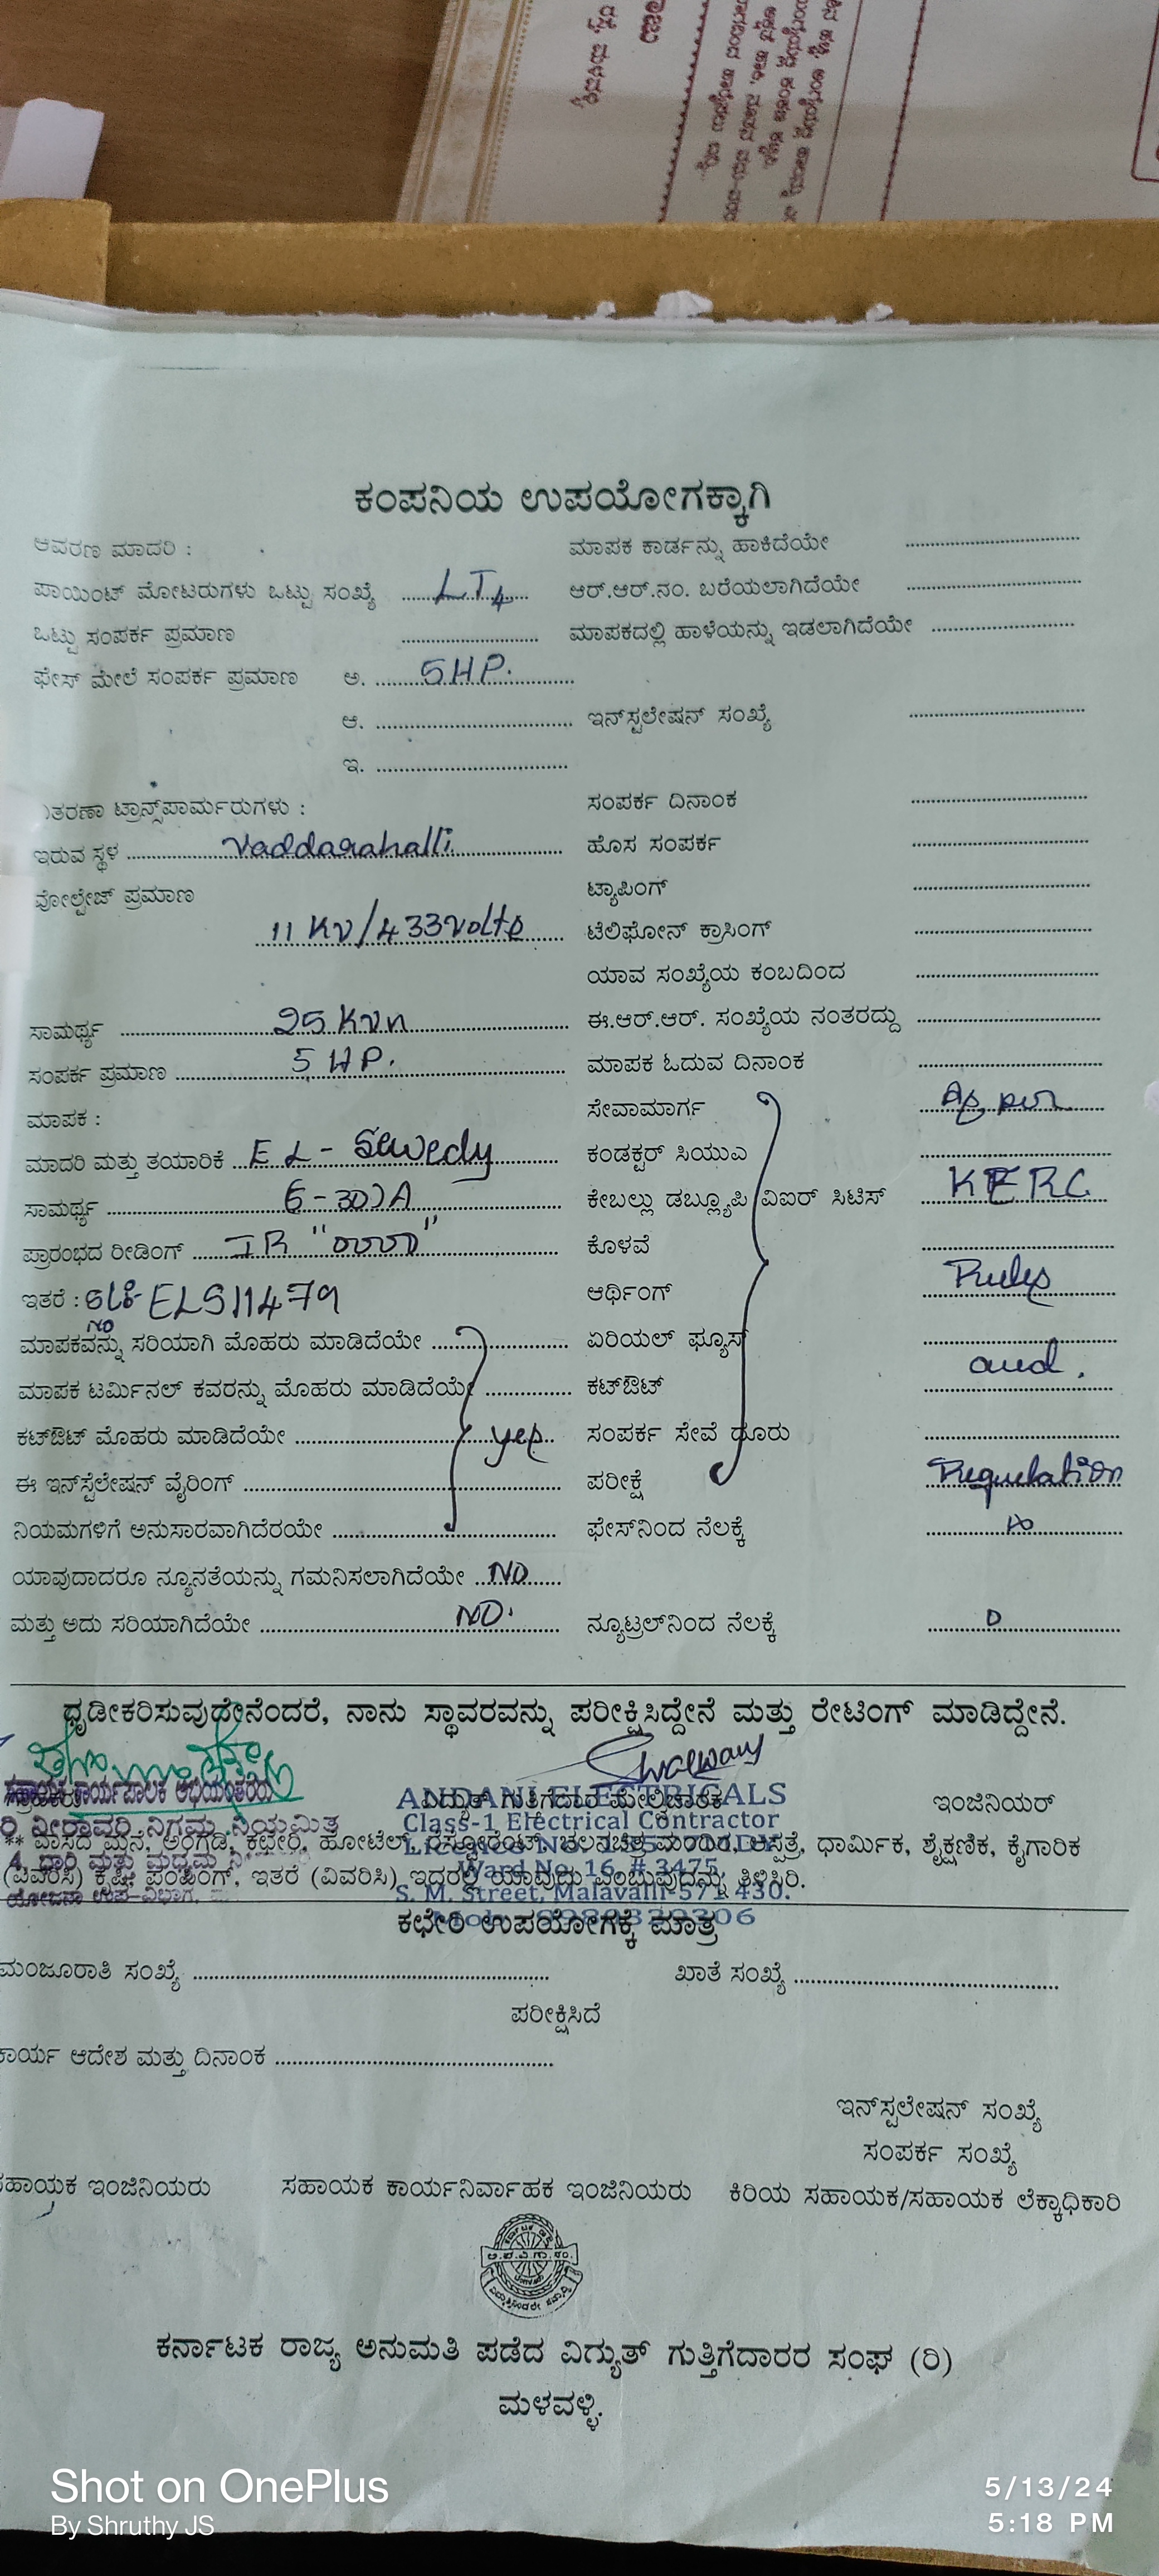 ಕಂಪನಿಯ ಉಪಯೋಗಕ್ಕಾಗಿ
ಆವರಣ ಮಾದರಿ : ಮಾಪಕ ಕಾರ್ಡನ್ನು ಹಾಕಿದೆಯೇ
ಪಾಯಿಂಟ್ ಮೋಟರುಗಳು ಒಟ್ಟು ಸಂಖ್ಯೆ LT4 ಆರ್.ಆರ್.ನಂ. ಬರೆಯಲಾಗಿದೆಯೇ
ಒಟ್ಟು ಸಂಪರ್ಕ ಪ್ರಮಾಣ ಮಾಪಕದಲ್ಲಿ ಹಾಳೆಯನ್ನು ಇಡಲಾಗಿದೆಯೇ
ಫೇಸ್ ಮೇಲೆ ಸಂಪರ್ಕ ಪ್ರಮಾಣ ಅ. 5HP.
ಆ. ಇನ್‌ಸ್ಟಲೇಷನ್ ಸಂಖ್ಯೆ
ಇ.
ತರಣಾ ಟ್ರಾನ್ಸ್‌ಫಾರ್ಮರುಗಳು : ಸಂಪರ್ಕ ದಿನಾಂಕ
ಇರುವ ಸ್ಥಳ Vaddarahalli ಹೊಸ ಸಂಪರ್ಕ
ವೋಲ್ಟೇಜ್ ಪ್ರಮಾಣ ಟ್ಯಾಪಿಂಗ್
11 KV/433volts ಟೆಲಿಫೋನ್ ಕ್ರಾಸಿಂಗ್
ಯಾವ ಸಂಖ್ಯೆಯ ಕಂಬದಿಂದ
ಸಾಮರ್ಥ್ಯ 25 KVA ಈ.ಆರ್.ಆರ್. ಸಂಖ್ಯೆಯ ನಂತರದ್ದು
ಸಂಪರ್ಕ ಪ್ರಮಾಣ 5 HP. ಮಾಪಕ ಓದುವ ದಿನಾಂಕ
ಮಾಪಕ : ಸೇವಾಮಾರ್ಗ As per
ಮಾದರಿ ಮತ್ತು ತಯಾರಿಕೆ EL - Sewedy ಕಂಡಕ್ಟರ್ ಸಿಯುಎ
ಸಾಮರ್ಥ್ಯ ಕೇಬಲ್ಲು ಡಬ್ಲ್ಯೂಪಿ/ವಿಐರ್ ಸಿಟಿಸ್ KERC
ಪ್ರಾರಂಭದ ರೀಡಿಂಗ್ IR ಕೊಳವೆ
ಇತರೆ : ELS11479 ಆರ್ಥಿಂಗ್ Rules
NO
ಮಾಪಕವನ್ನು ಸರಿಯಾಗಿ ಮೊಹರು ಮಾಡಿದೆಯೇ ಏರಿಯಲ್ ಫ್ಯೂಸ್
ಮಾಪಕ ಟರ್ಮಿನಲ್ ಕವರನ್ನು ಮೊಹರು ಮಾಡಿದೆಯೇ ಕಟ್‌ಔಟ್ and.
ಕಟ್‌ಔಟ್ ಮೊಹರು ಮಾಡಿದೆಯೇ yes ಸಂಪರ್ಕ ಸೇವೆ ದೂರು
ಈ ಇನ್‌ಸ್ಟೆಲೇಷನ್ ವೈರಿಂಗ್ ಪರೀಕ್ಷೆ Regulation
ನಿಯಮಗಳಿಗೆ ಅನುಸಾರವಾಗಿದೆರಯೇ ಫೇಸ್‌ನಿಂದ ನೆಲಕ್ಕೆ
ಯಾವುದಾದರೂ ನ್ಯೂನತೆಯನ್ನು ಗಮನಿಸಲಾಗಿದೆಯೇ NO
ಮತ್ತು ಅದು ಸರಿಯಾಗಿದೆಯೇ NO. ನ್ಯೂಟ್ರಲ್‌ನಿಂದ ನೆಲಕ್ಕೆ 0
ಧೃಡೀಕರಿಸುವುದೇನೆಂದರೆ, ನಾನು ಸ್ಥಾವರವನ್ನು ಪರೀಕ್ಷಿಸಿದ್ದೇನೆ ಮತ್ತು ರೇಟಿಂಗ್ ಮಾಡಿದ್ದೇನೆ.
ANDANI ELECTRICALS ಇಂಜಿನಿಯರ್
Class-1 Electrical Contractor
** ವಾಸದ ಮನೆ, ಅಂಗಡಿ, ಕಛೇರಿ, ಹೋಟೆಲ್, ರೆಸ್ಟೋರೆಂಟ್, ಚಲನಚಿತ್ರ ಮಂದಿರ, ಆಸ್ಪತ್ರೆ, ಧಾರ್ಮಿಕ, ಶೈಕ್ಷಣಿಕ, ಕೈಗಾರಿಕ
Ward No. 16, # 3475,
(ವಿವರಿಸಿ) ಕೃಷಿ, ಪಂಪಿಂಗ್, ಇತರೆ (ವಿವರಿಸಿ) ಇದರಲ್ಲಿ ಯಾವುದು ಎಂಬುವುದನ್ನು ತಿಳಿಸಿರಿ.
S. M. Street, Malavalli-571 430.
ಕಛೇರಿ ಉಪಯೋಗಕ್ಕೆ ಮಾತ್ರ
ಮಂಜೂರಾತಿ ಸಂಖ್ಯೆ ಖಾತೆ ಸಂಖ್ಯೆ
ಪರೀಕ್ಷಿಸಿದೆ
ಕಾರ್ಯ ಆದೇಶ ಮತ್ತು ದಿನಾಂಕ
ಇನ್‌ಸ್ಟಲೇಷನ್ ಸಂಖ್ಯೆ
ಸಂಪರ್ಕ ಸಂಖ್ಯೆ
ಸಹಾಯಕ ಇಂಜಿನಿಯರು ಸಹಾಯಕ ಕಾರ್ಯನಿರ್ವಾಹಕ ಇಂಜಿನಿಯರು ಕಿರಿಯ ಸಹಾಯಕ/ಸಹಾಯಕ ಲೆಕ್ಕಾಧಿಕಾರಿ
ಕರ್ನಾಟಕ ರಾಜ್ಯ ಅನುಮತಿ ಪಡೆದ ವಿದ್ಯುತ್ ಗುತ್ತಿಗೆದಾರರ ಸಂಘ (ರಿ)
ಮಳವಳ್ಳಿ.
Shot on OnePlus
By Shruthy JS
5/13/24
5:18 PM